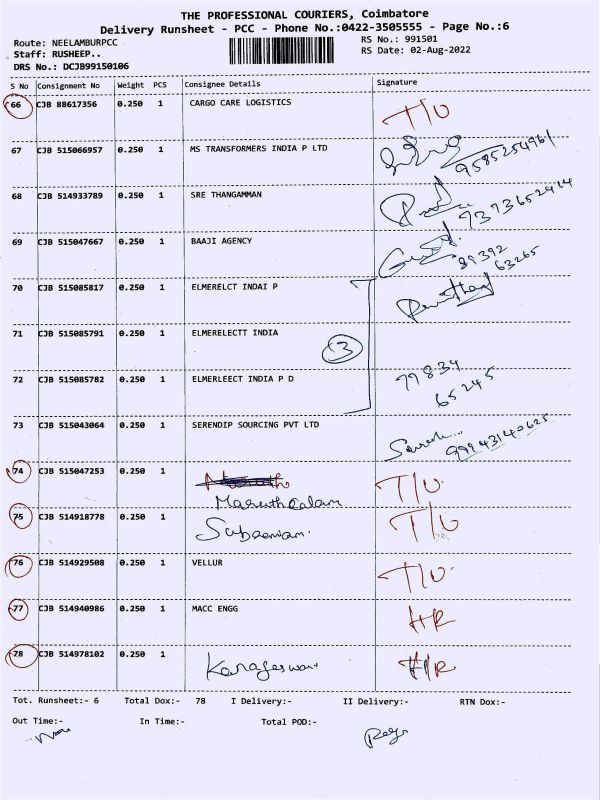 THE PROFESSIONAL COURIERS, Coimbatore
Delivery Runsheet - PCC - Phone No.:0422-3505555 - Page No.:6
Route: NEELAMBURPCC RS No.: 991501
Staff: RUSHEEP.. RS Date: 02-Aug-2022
DRS No.: DCJB99150106
S No Consignment No Weight PCS Consignee Details Signature
66 CJB 88617356 0.250 1 CARGO CARE LOGISTICS T/U
67 CJB 515066957 0.250 1 MS TRANSFORMERS INDIA P LTD 9585254961
68 CJB 514933789 0.250 1 SRE THANGAMMAN 7373652414
69 CJB 515047667 0.250 1 BAAJI AGENCY 89392
63265
70 CJB 515085817 0.250 1 ELMERELCT INDAI P
71 CJB 515085791 0.250 1 ELMERELECTT INDIA
3
72 CJB 515085782 0.250 1 ELMERLEECT INDIA P D 77834
65245
73 CJB 515043064 0.250 1 SERENDIP SOURCING PVT LTD 99943140625
74 CJB 515047253 0.250 1 T/U
75 CJB 514918778 0.250 1 T/U
76 CJB 514929508 0.250 1 VELLUR T/U
77 CJB 514940986 0.250 1 MACC ENGG HR
78 CJB 514978102 0.250 1 Karageswari
Tot. Runsheet:- 6 Total Dox:- 78 I Delivery:- II Delivery:- RTN Dox:-
Out Time:- In Time:- Total POD:-